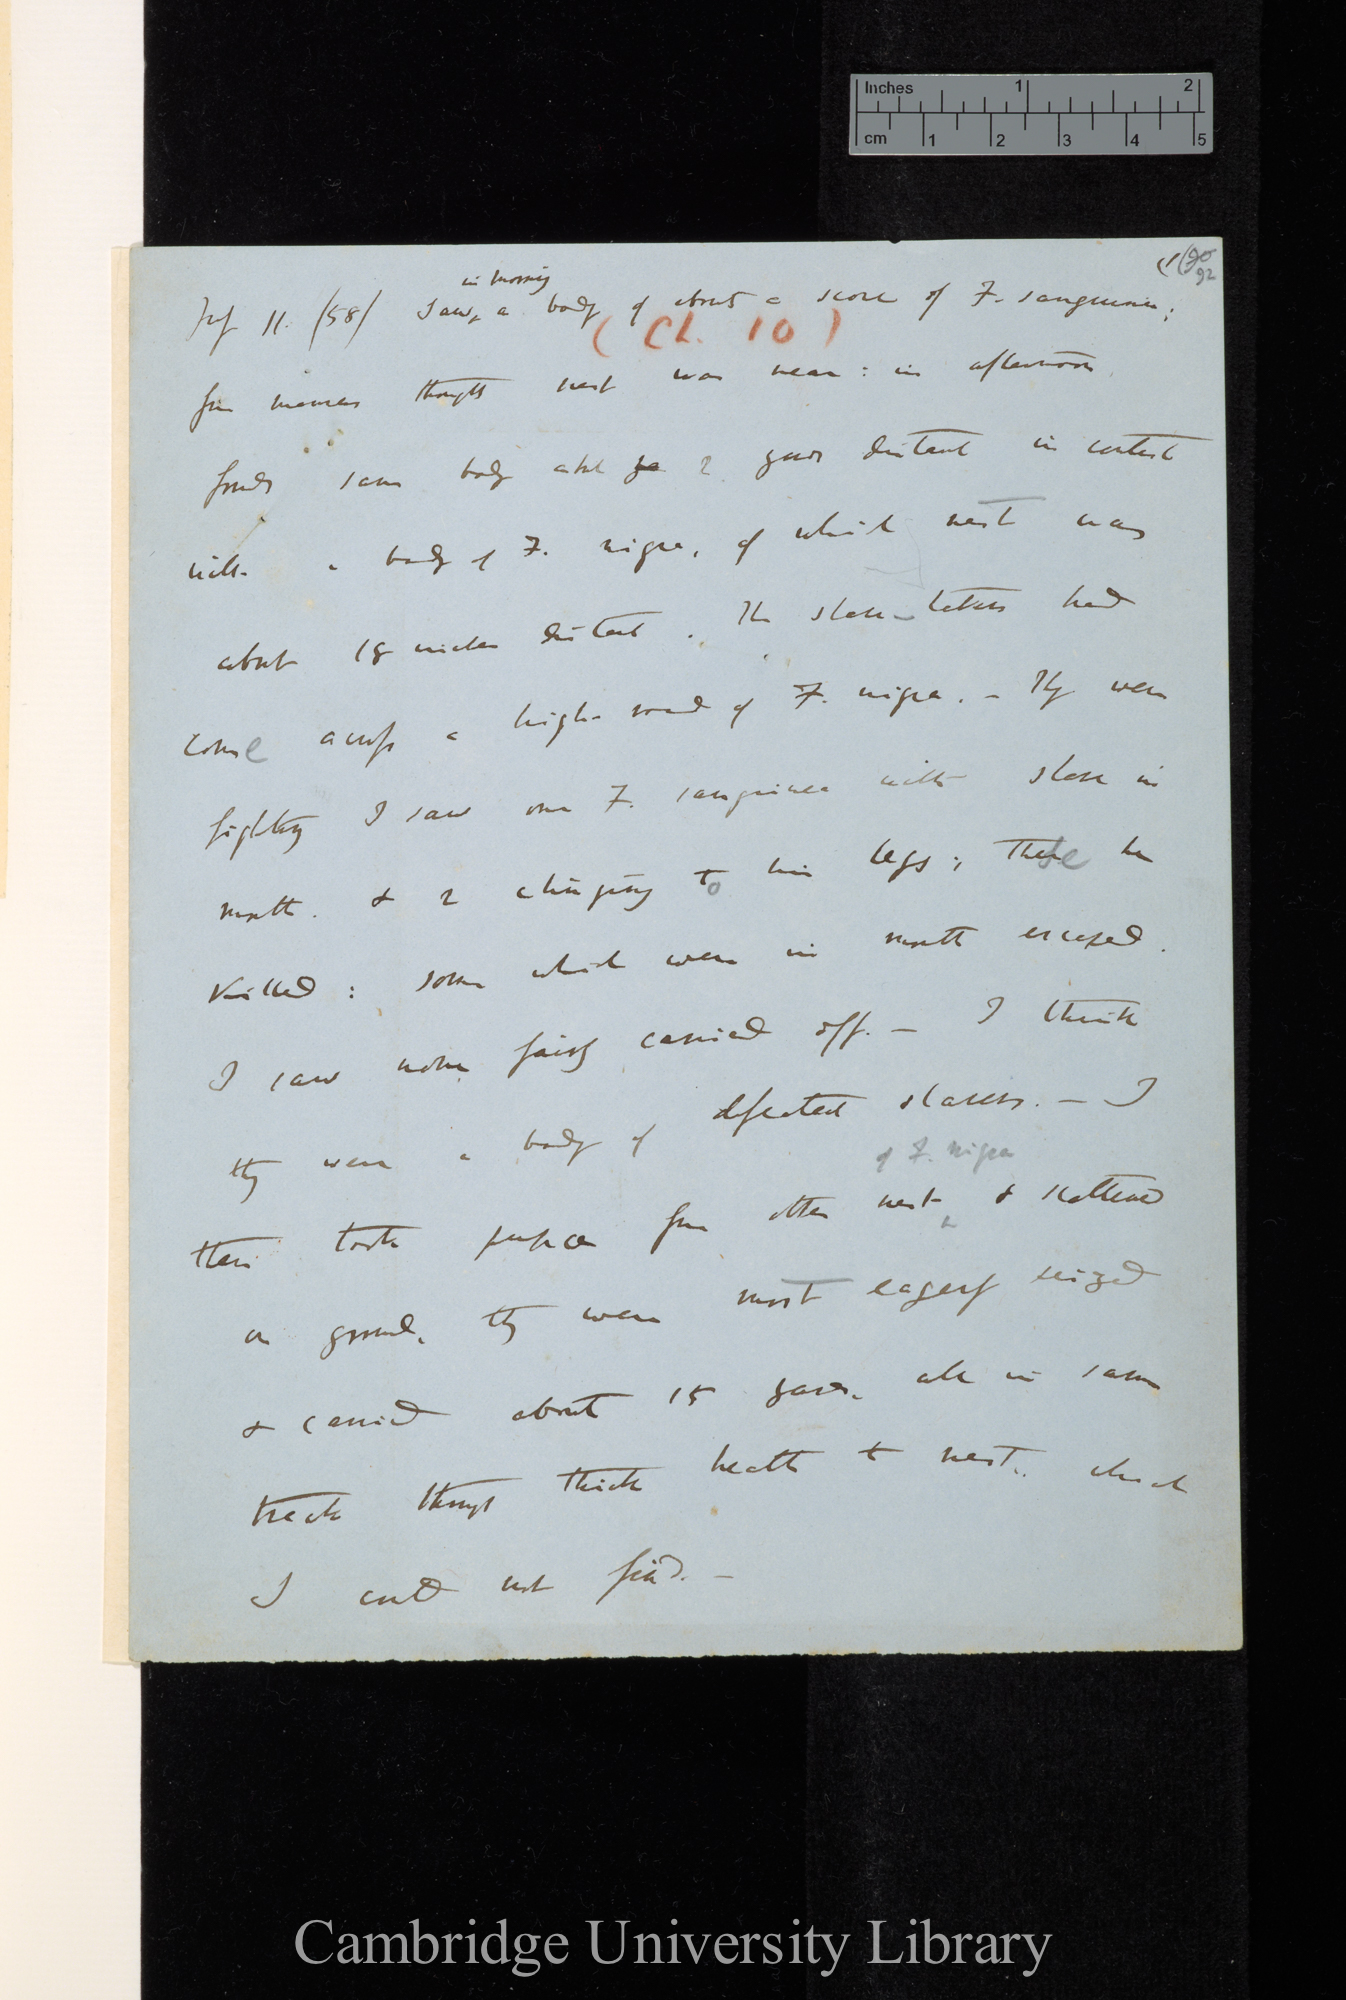 Inches 1 2
cm 1 2 3 4 5
(90
92
in morning
July 11. (58) Saw, a body of about a score of F. sanguinea;
(Ch. 10)
from manner thought nest was near: in afternoon
found same body about 2 yards distant in contest
with a body of F. nigra, of which nest was
about 18 inches distant. The slave-takers had
come across a high-road of F. nigra. — They were
fighting I saw one F. sanguinea with slave in
mouth. & 2 clinging to his legs; these he
killed: some which were in mouth escaped.
I saw none fairly carried off. — I think
they were a body of defeated slavers. — I
of F. nigra
then took pupæ from other nest & scattered
on ground, they were most eagerly seized
& carried about 15 yards, all in same
track through thick heath to nest, which
I could not find. —
Cambridge University Library